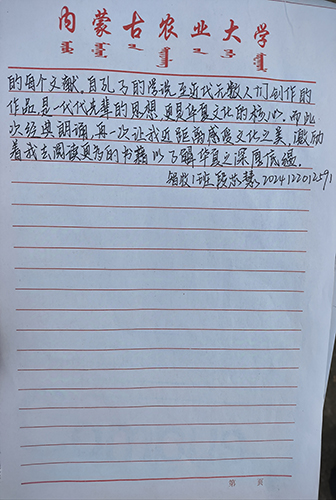 内蒙古农业大学
的每个文献,自孔子的漫谈,至近代无数人们创作的
作品,是一代代先辈的思想,更是华夏文化的核心。而此
次经典朗诵,再一次让我近距离感受文化之美,激励
着我去阅读更多的书籍以了解华夏之深厚底蕴。
班段芯慧 2024122012591
第 页